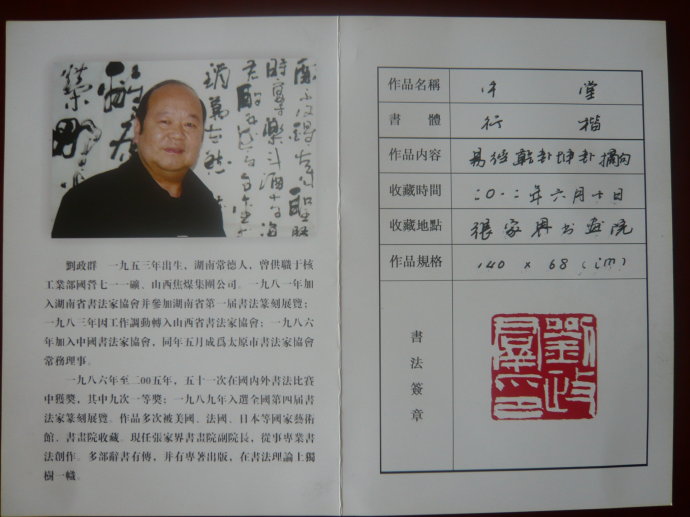 劉政群　一九五三年出生，湖南常德人，曾供職于核
工業部國營七一一礦、山西焦煤集團公司。一九八一年加
入湖南省書法家協會并參加湖南省第一届書法篆刻展覽；
一九八三年因工作調動轉入山西省書法家協會；一九八六
年加入中國書法家協會，同年五月成爲太原市書法家協會
常務理事。
一九八六年至二00五年，五十一次在國内外書法比賽
中獲獎，其中九次一等獎；一九八九年入選全國第四届書
法家篆刻展覽。作品多次被美國、法國、日本等國家藝術
館、書畫院收藏。現任張家界書畫院副院長，從事專業書
法創作。多部辭書有傳，并有專著出版，在書法理論上獨
樹一幟。
作品名稱　中堂
書體　行楷
作品内容　易經乾卦坤卦摘句
收藏時間　二〇一二年六月十日
收藏地點　張家界书画院
作品規格　140 × 68 (cm)
書法簽章
劉政群印